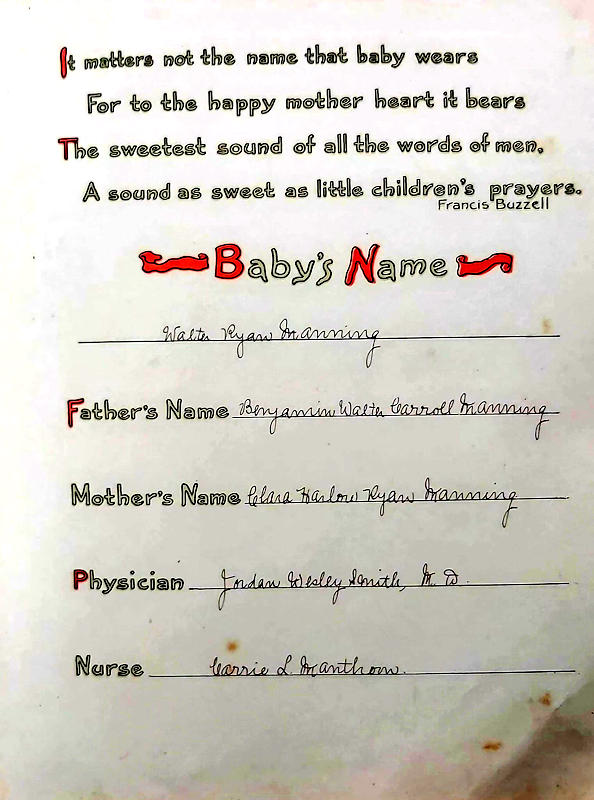 It matters not the name that baby wears
For to the happy mother heart it bears
The sweetest sound of all the words of men,
A sound as sweet as little children's prayers.
Francis Buzzell
Baby's Name
Walter Ryan Manning
Father's Name Benjamin Walter Carroll Manning
Mother's Name Clara Harlow Ryan Manning
Physician Jordan Wesley Smith, M. D.
Nurse Carrie L.